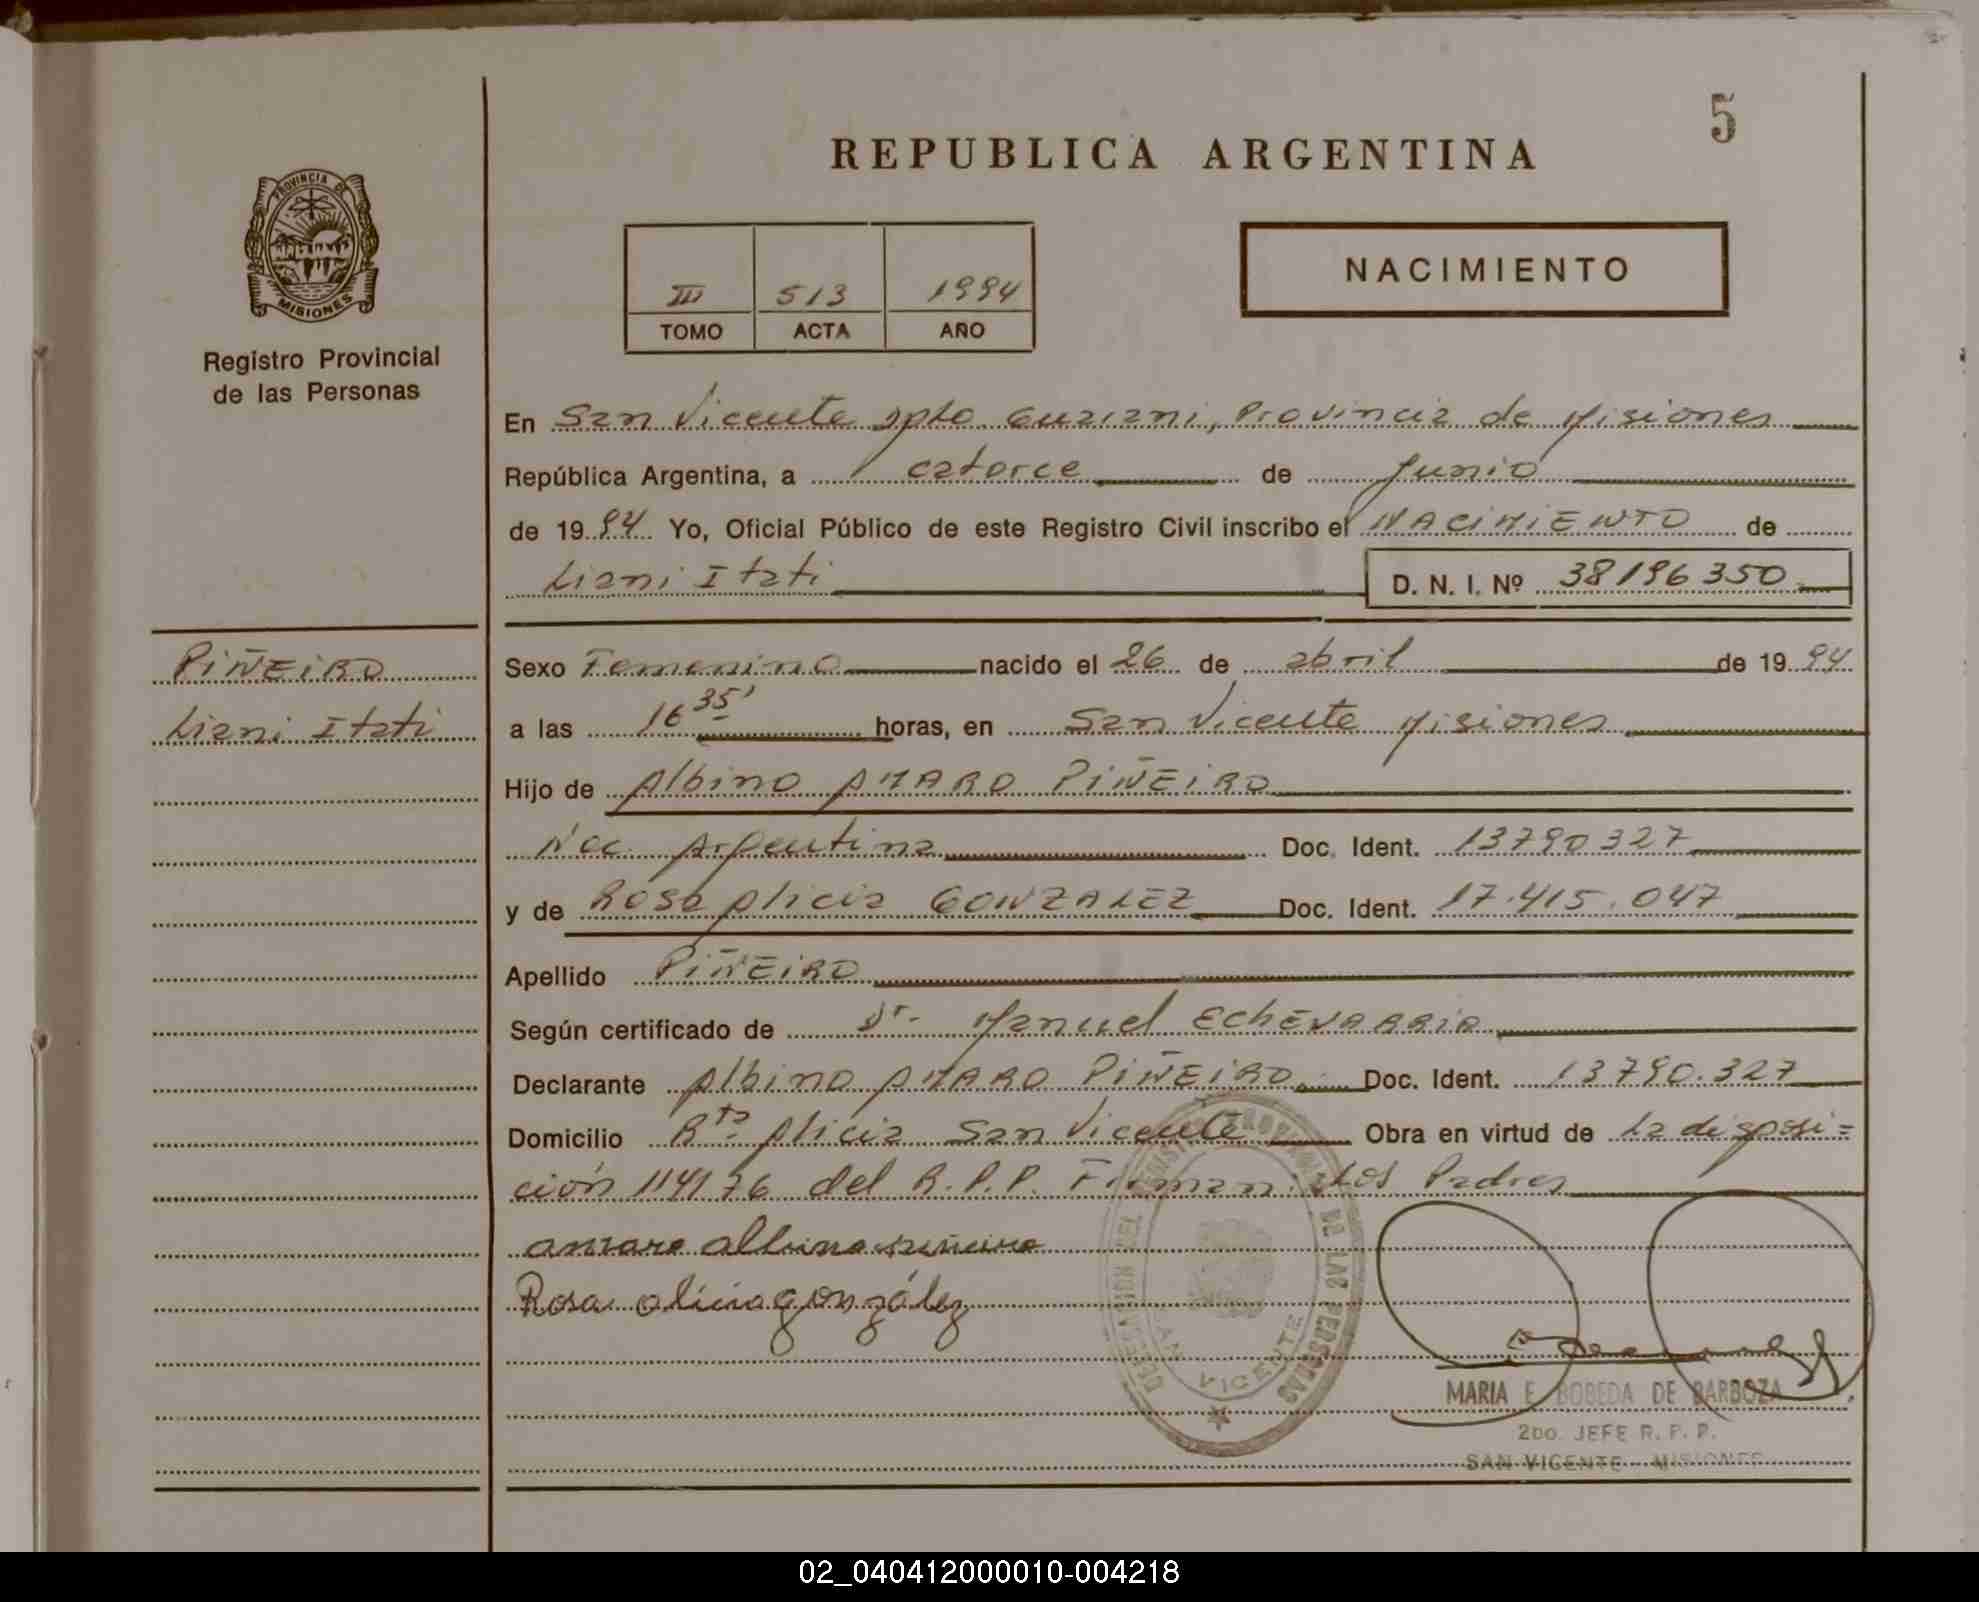 5
REPUBLICA ARGENTINA
PROVINCIA DE
MISIONES
NACIMIENTO
III 513 1994
TOMO ACTA AÑO
Registro Provincial
de las Personas
En San Vicente Dpto Guarani, Provincia de Misiones
República Argentina, a catorce de Junio
de 1994 Yo, Oficial Público de este Registro Civil inscribo el NACIMIENTO de
Liani Itati D. N. I. Nº 38196350
PIÑEIRO
Liani Itati
Sexo Femenino nacido el 26 de abril de 1994
a las 16 35' horas, en San Vicente Misiones
Hijo de Albino AMARO PIÑEIRO
Nac. Argentina Doc. Ident. 13790327
y de Rosa Alicia GONZALEZ Doc. Ident. 17.415.047
Apellido PIÑEIRO
Según certificado de Dr. Manuel EchEVARRIA
Declarante Albino AMARO PIÑEIRO Doc. Ident. 13790.327
Domicilio Rta Alicia San Vicente Obra en virtud de la disposi=
ción 114/76 del R.P.P. Firman: Los Padres
amaro albino piñeiro
Rosa alicia gonzález
DELEGACION DEL REGISTRO PROVINCIAL DE LAS PERSONAS
SAN VICENTE
MARIA E. BOBEDA DE BARBOZA
2DO. JEFE R. P. P.
SAN VICENTE - MISIONES
02_040412000010-004218